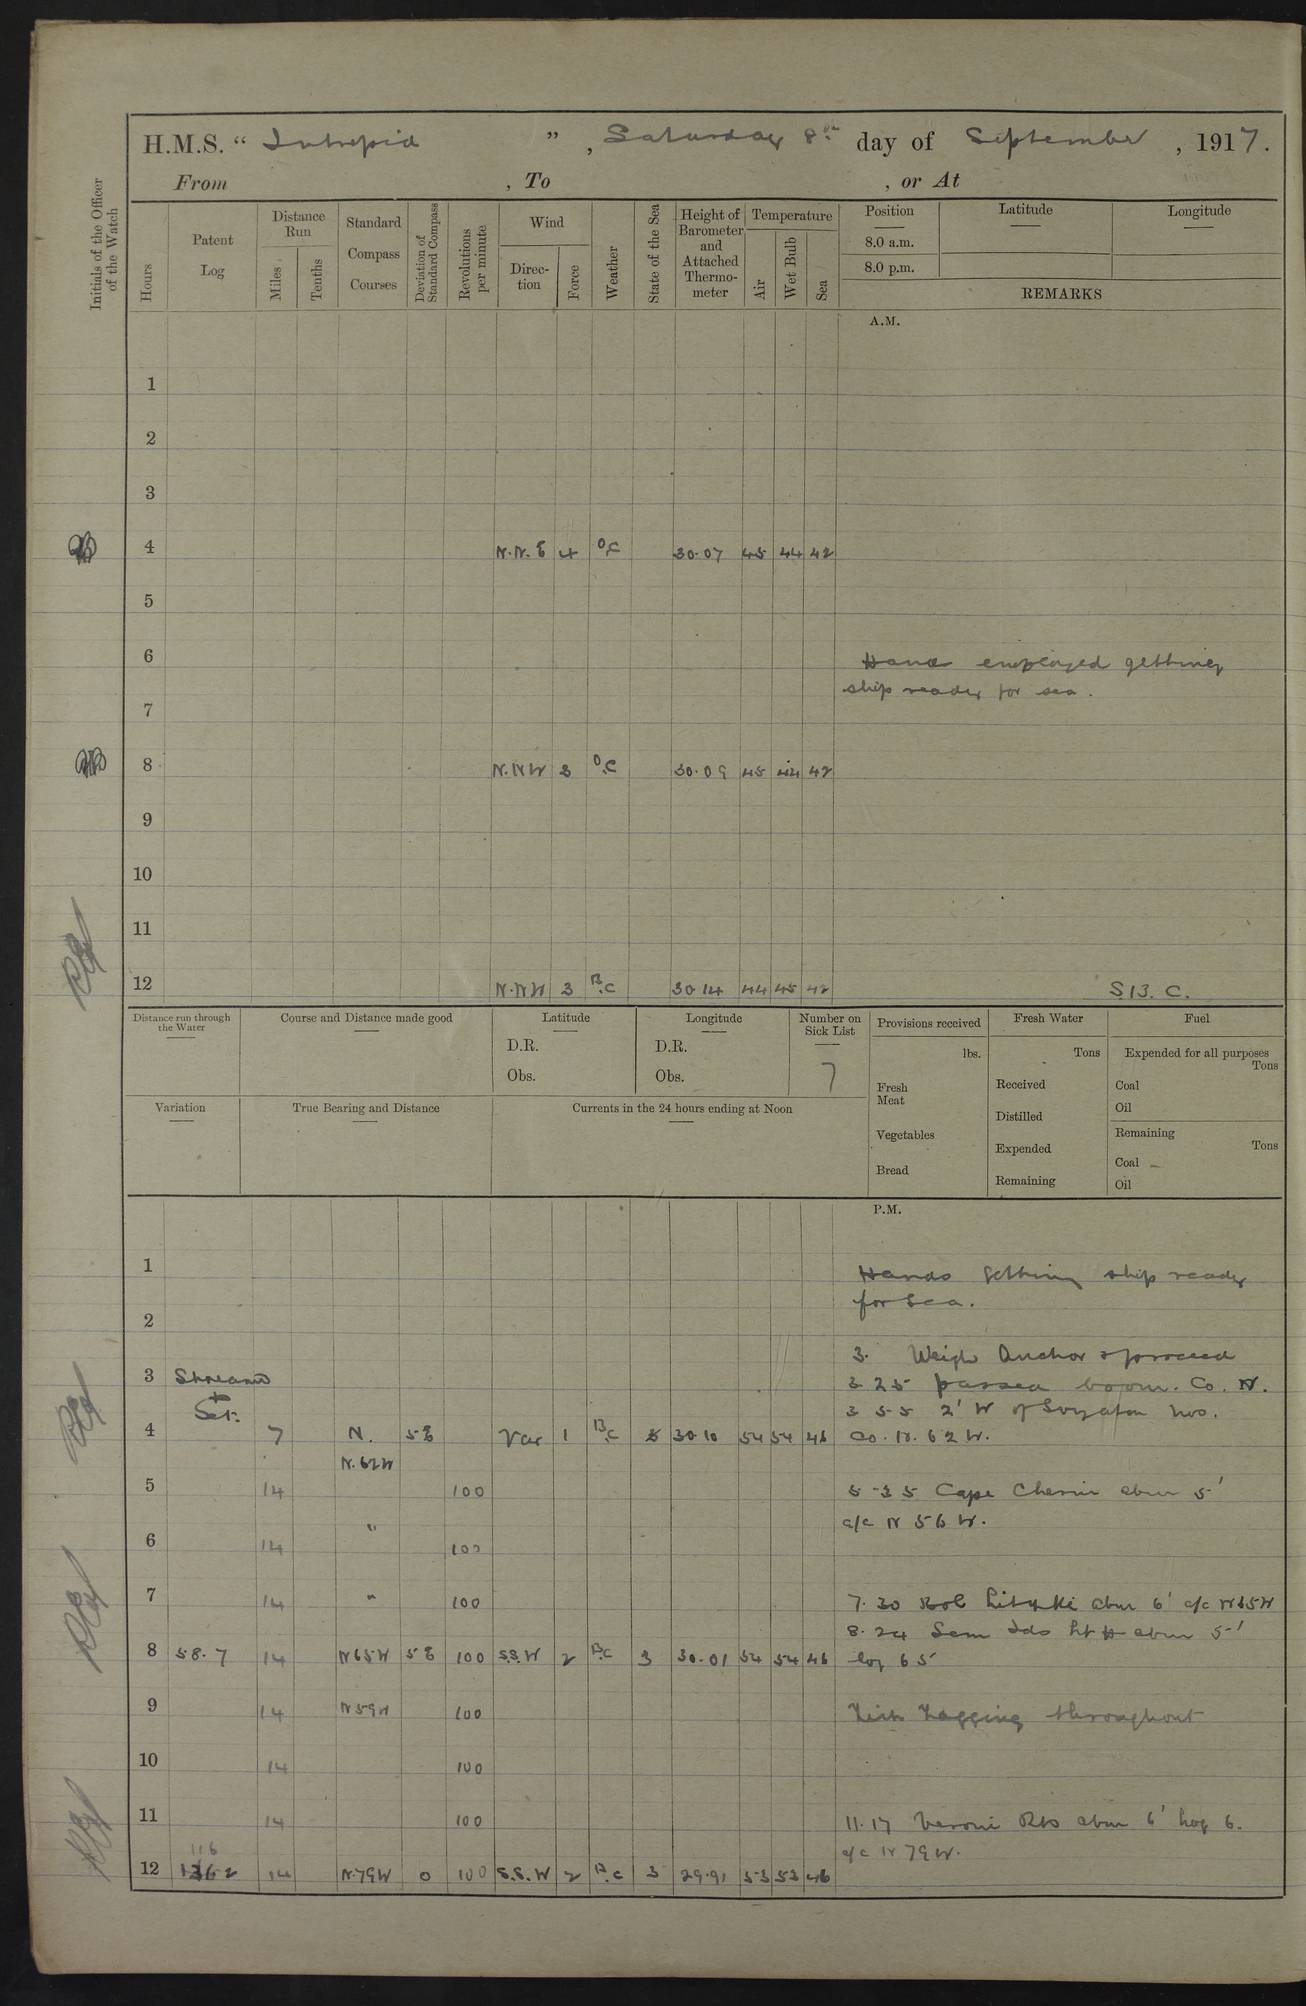 H.M.S. “ Intrepid ”, Saturday 8th day of September, 1917.
From , To , or At
Initials of the Officer of the Watch
Hours
Patent Log
Distance Run
Miles
Tenths
Standard Compass Courses
Deviation of Standard Compass
Revolutions per minute
Wind
Direction
Force
Weather
State of the Sea
Height of Barometer and Attached Thermometer
Temperature
Air
Wet Bulb
Sea
Position
Latitude
Longitude
8.0 a.m.
8.0 p.m.
REMARKS
A.M.
1
2
3
4 N.N.E 4 O,C 30.07 45 44 42
5
6 employed getting
ship ready for sea.
7
8 N.NW 3 O,C 30.09 45 44 42
9
10
11
12 N.NW 3 B.C 30.14 44 45 42 S.13. C.
Distance run through the Water
Course and Distance made good
Latitude
D.R.
Obs.
Longitude
D.R.
Obs.
Number on Sick List
7
Provisions received
lbs.
Fresh Meat
Vegetables
Bread
Fresh Water
Tons
Received
Distilled
Expended
Remaining
Fuel
Expended for all purposes
Tons
Coal
Oil
Remaining
Tons
Coal –
Oil
Variation
True Bearing and Distance
Currents in the 24 hours ending at Noon
P.M.
1 Hands getting ship ready
for sea.
2
3. Weigh Anchor & proceed
3 Streamed 3 25 passed boom. Co. N.
& Set. 3 55 2' W of
4 7 N. 5E Var 1 B.C 30.10 54 54 46 Co. N. 62 W.
N.62W
5 14 100 5-35 Cape abm 5'
a/c N 56 W.
6 14 " 100
7 14 " 100 7.30 abm 6' a/c N65W
8.24 Ids Lt abm 5'
8 58.7 14 N65W 5E 100 S.S.W 2 B.C 3 30.01 54 54 46 log 65
9 14 N59W 100 Zig Zagging throughout
10 14 100
11 14 100 11.17 abm 6' log 6.
116 a/c N 79W.
12 14 N.79W 0 100 S.S.W 2 B.C 3 29.91 53 53 46